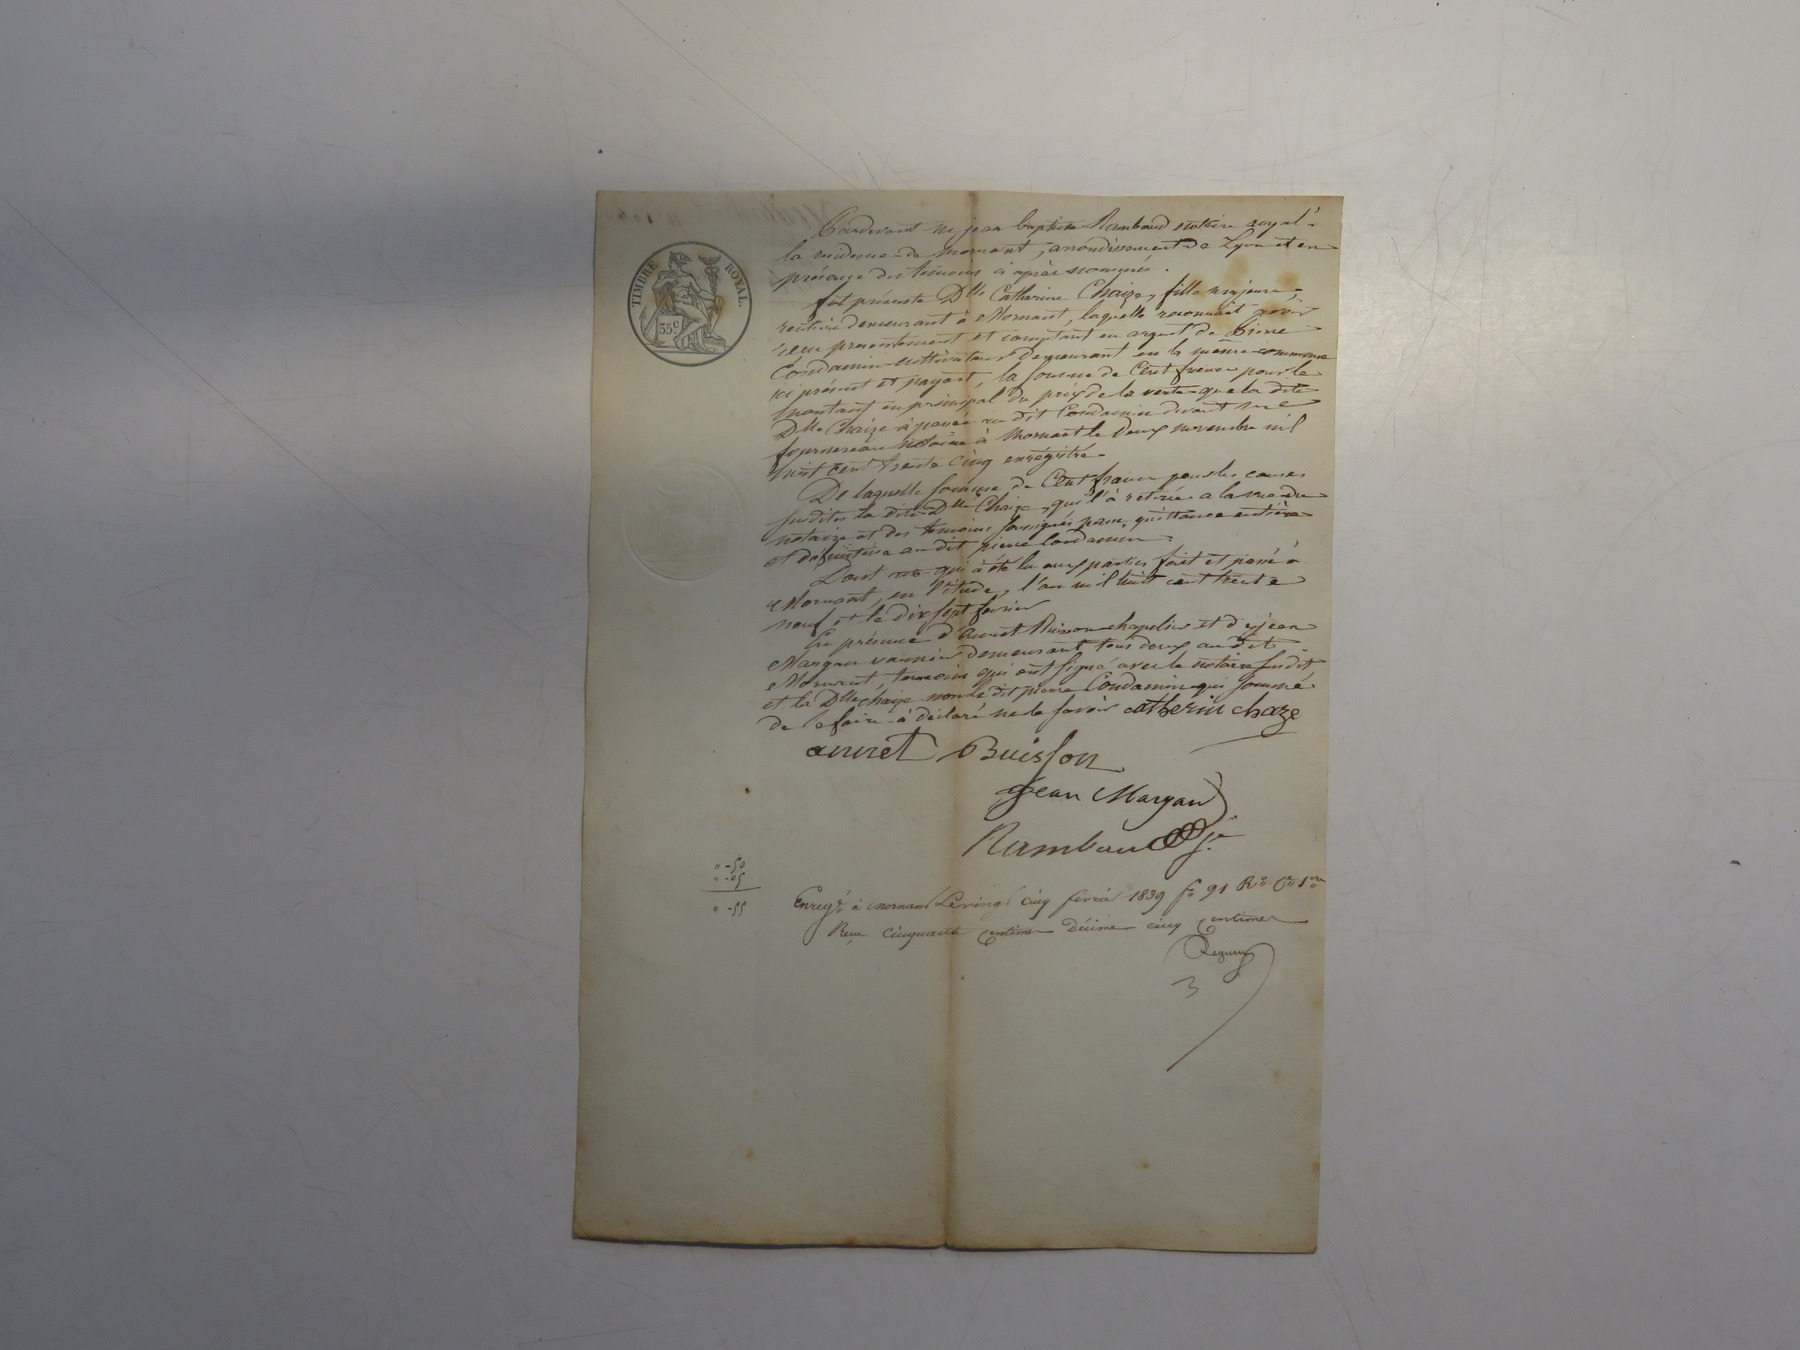 TIMBRE ROYAL.
35c.
Pardevant Me jean baptiste Rambaud notaire royal à
la residence de Mornant, arrondissement de Lyon et en
présence des témoins ci après nommés.
fut présente Dlle Catherine Chaize, fille majeure,
rentière demeurant à Mornant, laquelle reconnait avoir
reçu presentement et comptant en argent de Pierre
Condamin cultivateur demeurant en la même commune
ici présent et payant, la somme de Cent francs pour le
montant en principal du prix de la vente que la dite
Dlle Chaize à passée au dit Condamin devant Me
fournereau notaire à Mornant le deux novembre mil
huit cent trente cinq enregistré.
De laquelle somme de Cent francs pour les causes
susdites la dite Dlle Chaize, qui l'à retirée a la vue du
notaire et des temoins soussignés passe quittance entière
et définitive au dit pierre Condamin.
Dont acte qui à été lu aux parties fait et passé à
Mornant, en l'étude, l'an mil huit cent trente
neuf et le dix sept fevrier
En présence d'annet Buisson chapelier et de jean
Margan vannier demeurant tous deux au dit
Mornant, temoins qui ont signé avec le notaire susdit
et la Dlle Chaize non le dit pierre Condamin qui sommé
de le faire à déclaré ne le savoir catherin chaze
annet Buisson
jean Margan
Rambaud
" - 50
" - 05
" - 55
Enregé à mornant Le vingt cinq fevrier 1839 fo 91 Ro Ce 1ere
Reçu cinquante centimes Décime cinq centimes